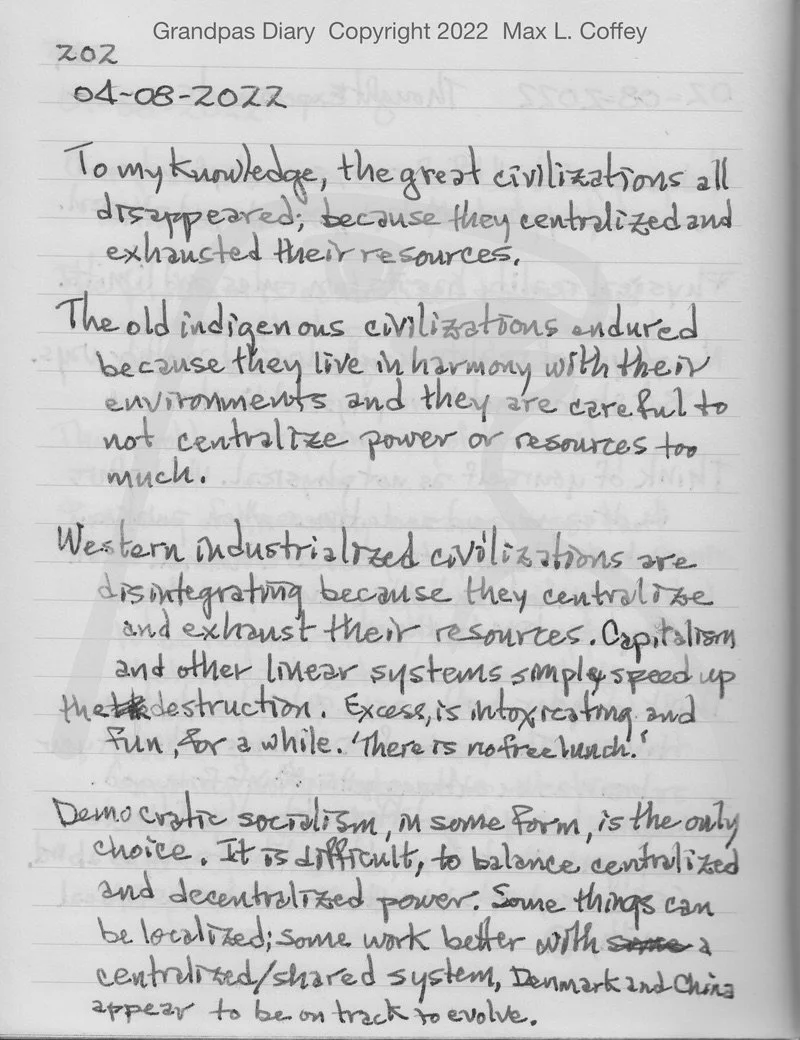 Grandpas Diary Copyright 2022 Max L. Coffey
202
04-08-2022
To my knowledge, the great civilizations all
disappeared; because they centralized and
exhausted their resources.
The old indigenous civilizations endured
because they live in harmony with their
environments and they are careful to
not centralize power or resources too
much.
Western industrialized civilizations are
disintegrating because they centralize
and exhaust their resources. Capitalism
and other linear systems simply speed up
the destruction. Excess, is intoxicating and
fun, for a while. 'There is no free lunch.'
Democratic socialism, in some form, is the only
choice. It is difficult, to balance centralized
and decentralized power. Some things can
be localized; some work better with some a
centralized/shared system, Denmark and China
appear to be on track to evolve.